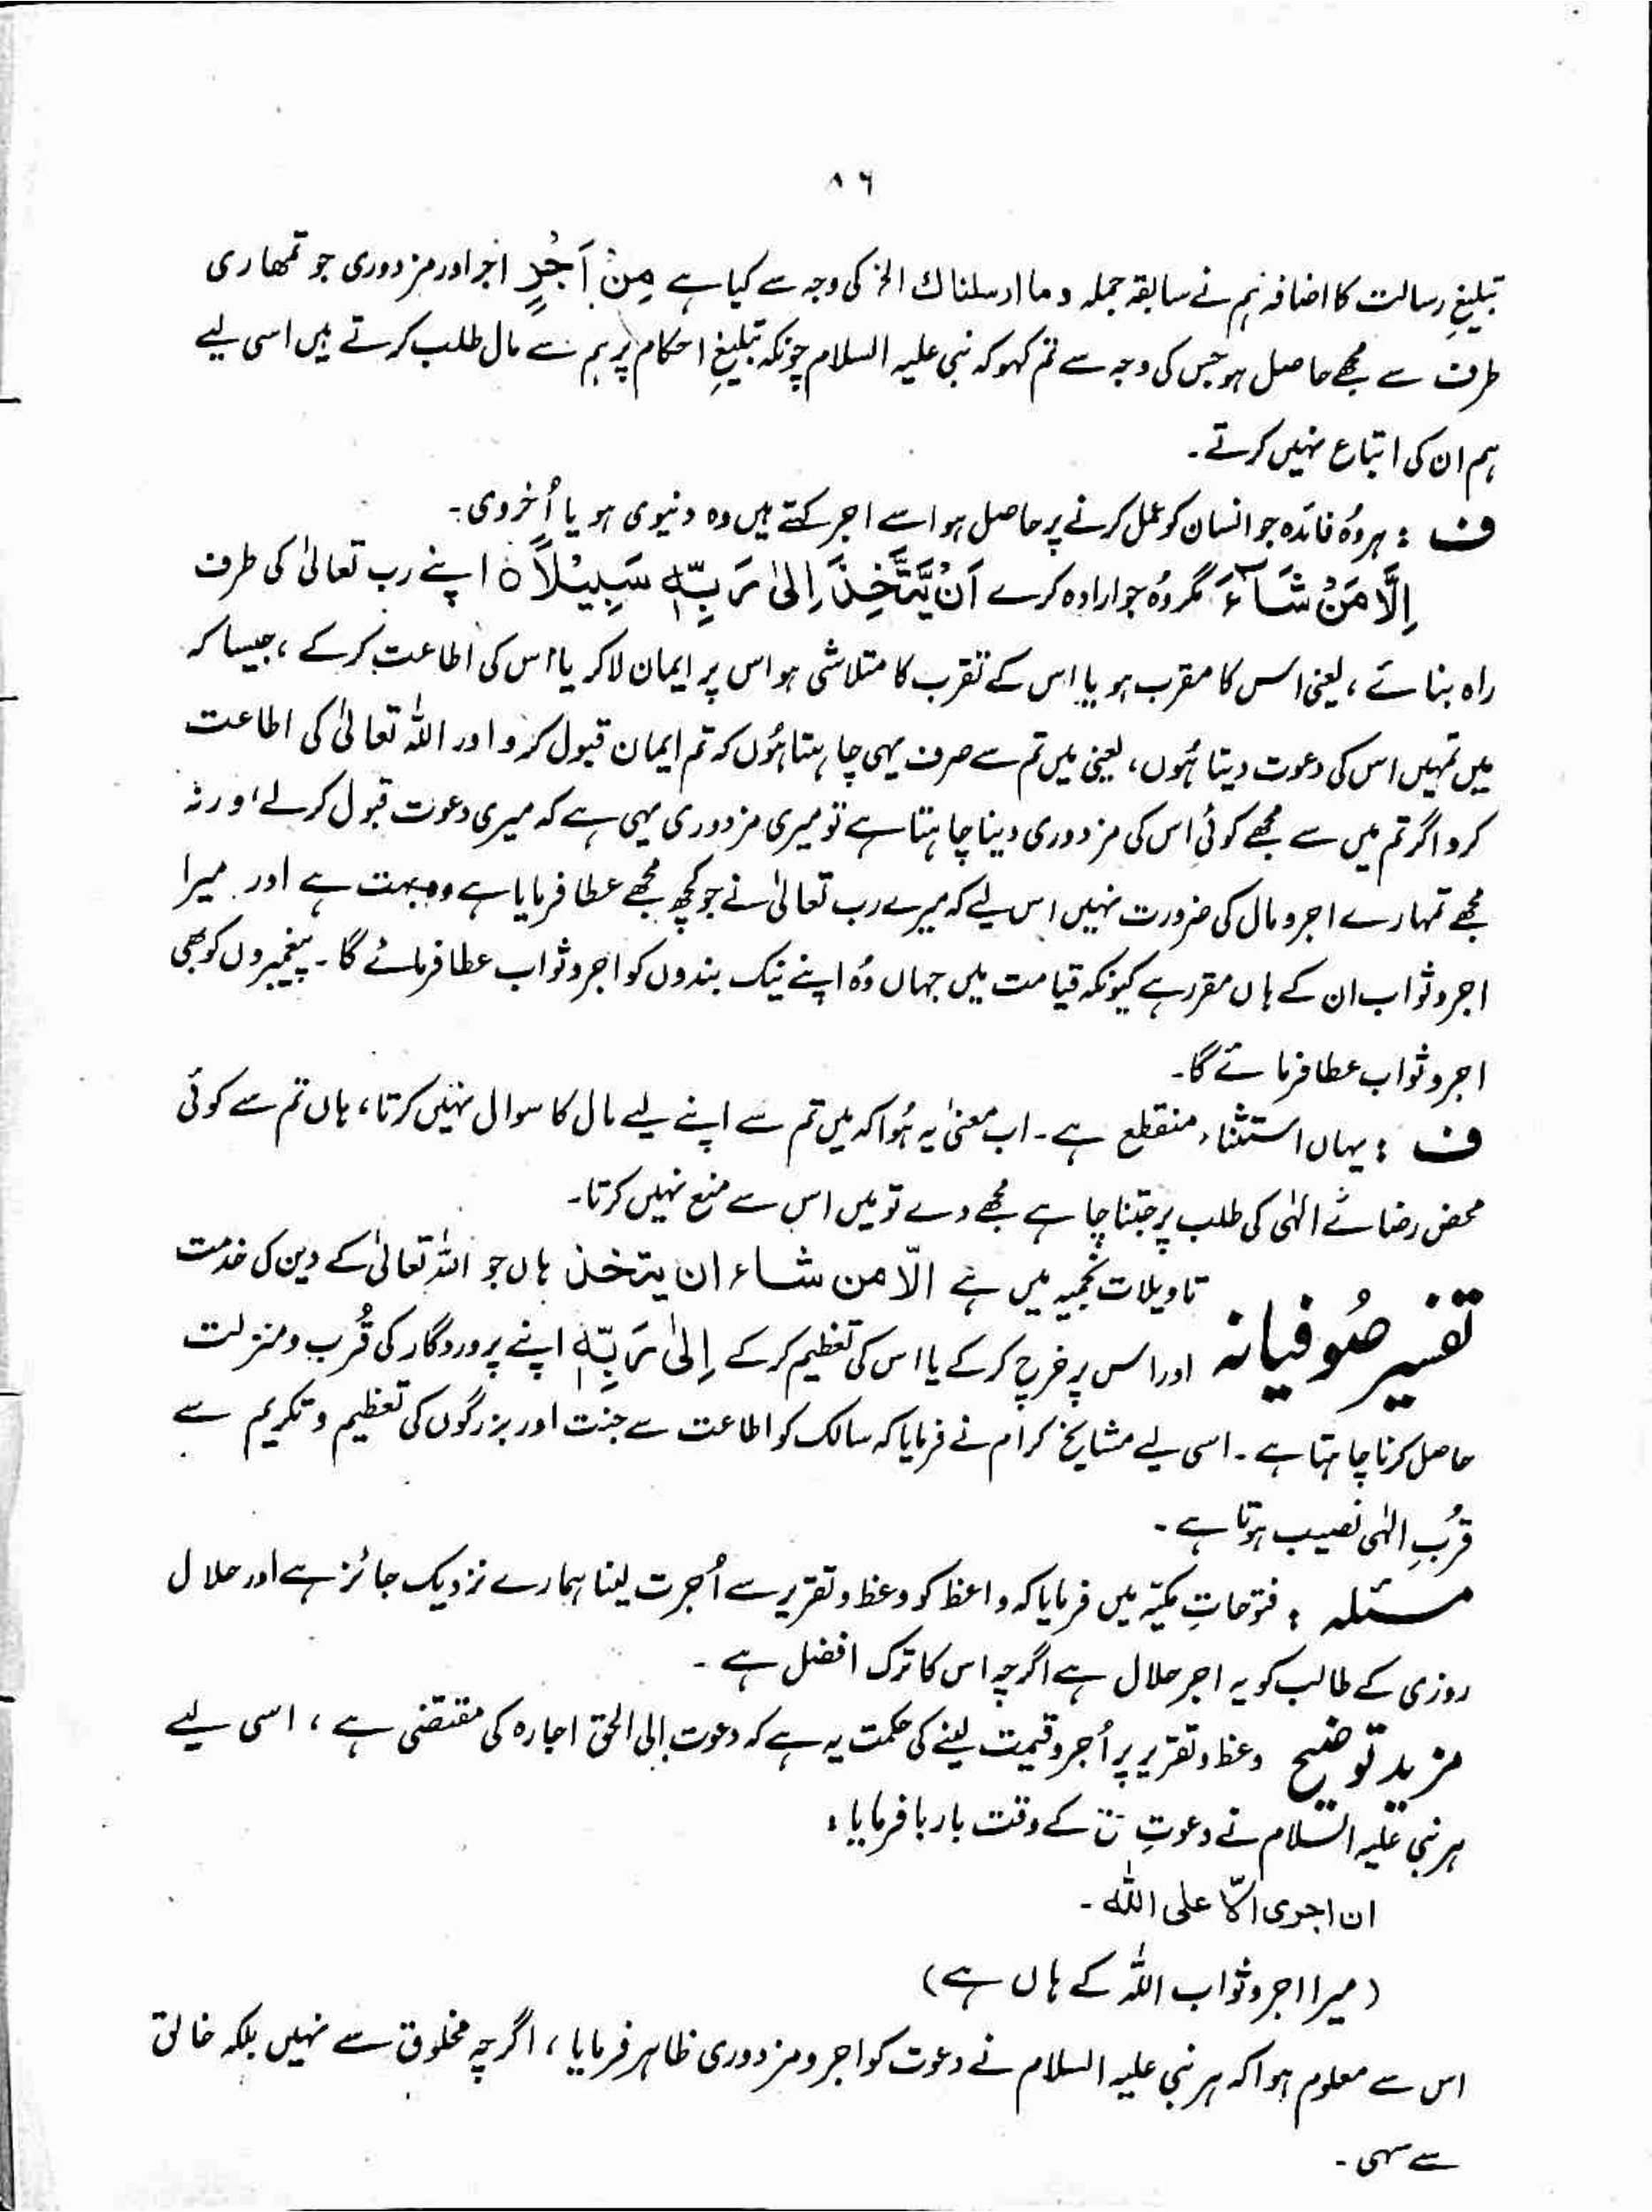 ۸۶
تبلیغِ رسالت کا اضافہ ہم نے سابقہ جملہ وما ارسلناك الخ کی وجہ سے کیا ہے مِنْ اَجْرٍ اجر اور مزدوری جو تمھاری
طرف سے مجھے حاصل ہو جس کی وجہ سے تم کہو کہ نبی علیہ السلام چونکہ تبلیغِ احکام پر ہم سے مال طلب کرتے ہیں اسی لیے
ہم ان کی اتباع نہیں کرتے۔
ف : ہر وُہ فائدہ جو انسان کو عمل کرنے پر حاصل ہو اسے اجر کہتے ہیں وہ دنیوی ہو یا اُخروی۔
اِلَّا مَنْ شَآءَ مگر وُہ جو ارادہ کرے اَنْ يَّتَّخِذَ اِلىٰ رَبِّهٖ سَبِيْلًا ٥ اپنے رب تعالیٰ کی طرف
راہ بنائے، یعنی اس کا مقرب ہو یا اس کے تقرب کا متلاشی ہو اس پر ایمان لاکر یا اس کی اطاعت کرکے، جیسا کہ
میں تمہیں اس کی دعوت دیتا ہُوں، یعنی میں تم سے صرف یہی چاہتا ہُوں کہ تم ایمان قبول کرو اور اللہ تعالیٰ کی اطاعت
کرو اگر تم میں سے مجھے کوئی اس کی مزدوری دینا چاہتا ہے تو میری مزدوری یہی ہے کہ میری دعوت قبول کرلے، ورنہ
مجھے تمہارے اجر و مال کی ضرورت نہیں اس لیے کہ میرے رب تعالیٰ نے جو کچھ مجھے عطا فرمایا ہے وہ بہت ہے اور میرا
اجر و ثواب ان کے ہاں مقرر ہے کیونکہ قیامت میں جہاں وُہ اپنے نیک بندوں کو اجر و ثواب عطا فرمائے گا۔ پیغمبروں کو بھی
اجر و ثواب عطا فرمائے گا۔
ف : یہاں استثناء منقطع ہے۔ اب معنیٰ یہ ہُوا کہ میں تم سے اپنے لیے مال کا سوال نہیں کرتا، ہاں تم سے کوئی
محض رضائے الٰہی کی طلب پر جتنا چاہے مجھے دے تو میں اس سے منع نہیں کرتا۔
تفسیر صُوفیانہ تاویلات نجمیہ میں ہے الّا من شاء ان يتخذ ہاں جو اللہ تعالیٰ کے دین کی خدمت
اور اس پر خرچ کرکے یا اس کی تعظیم کرکے اِلىٰ رَبِّهٖ اپنے پروردگار کی قُرب و منزلت
حاصل کرنا چاہتا ہے۔ اسی لیے مشایخ کرام نے فرمایا کہ سالک کو اطاعت سے جنت اور بزرگوں کی تعظیم و تکریم سے
قُربِ الٰہی نصیب ہوتا ہے۔
مسئلہ : فتوحاتِ مکیّہ میں فرمایا کہ واعظ کو وعظ و تقریر سے اُجرت لینا ہمارے نزدیک جائز ہے اور حلال
روزی کے طالب کو یہ اجر حلال ہے اگرچہ اس کا ترک افضل ہے۔
مزید توضیح وعظ و تقریر پر اُجر و قیمت لینے کی حکمت یہ ہے کہ دعوت الی الحق اجارہ کی مقتضی ہے، اسی لیے
ہر نبی علیہ السّلام نے دعوتِ کے وقت بارہا فرمایا :
ان اجری الّا علی اللہ۔
(میرا اجر و ثواب اللہ کے ہاں ہے)
اس سے معلوم ہوا کہ ہر نبی علیہ السلام نے دعوت کو اجر و مزدوری ظاہر فرمایا، اگرچہ مخلوق سے نہیں بلکہ خالق
سے سہی۔